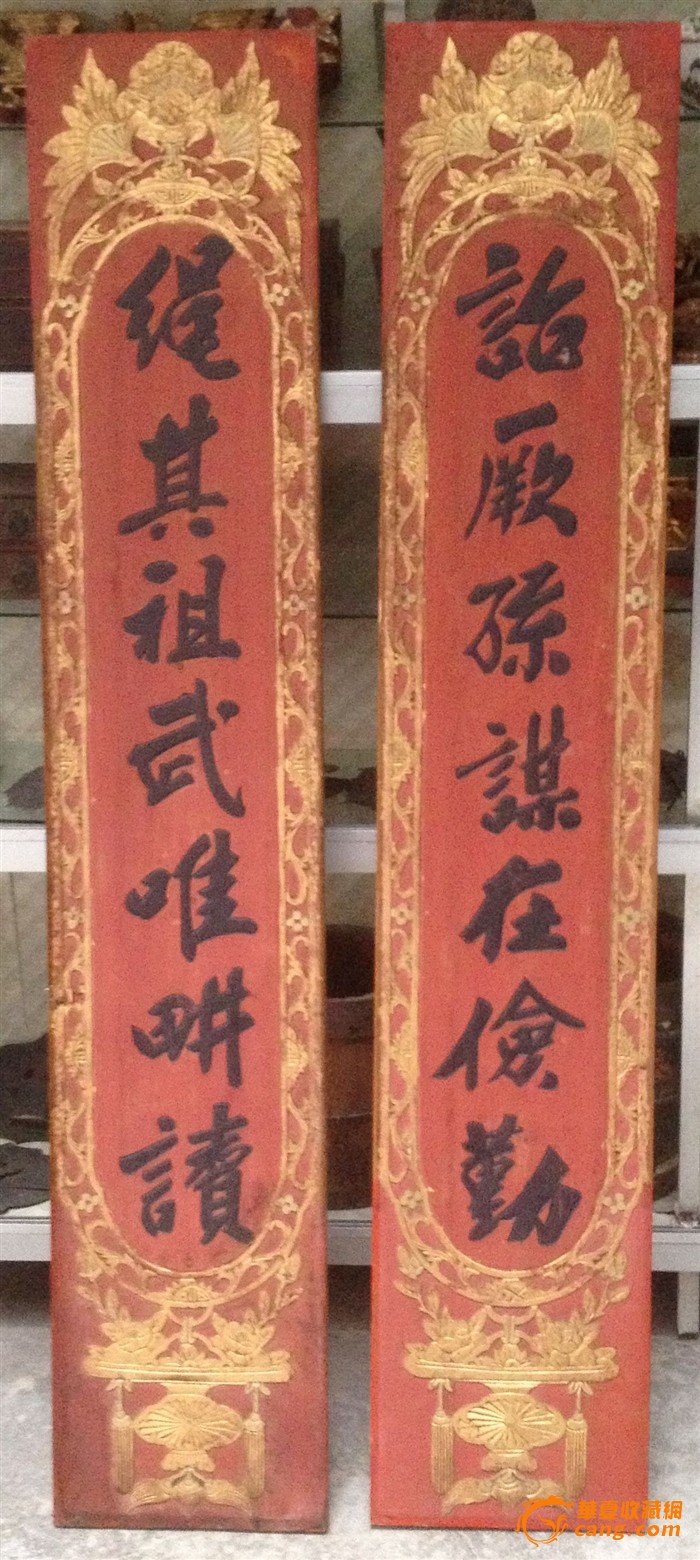 詒厥孫謀在儉勤
繩其祖武唯畊讀
華夏收藏網
cang.com